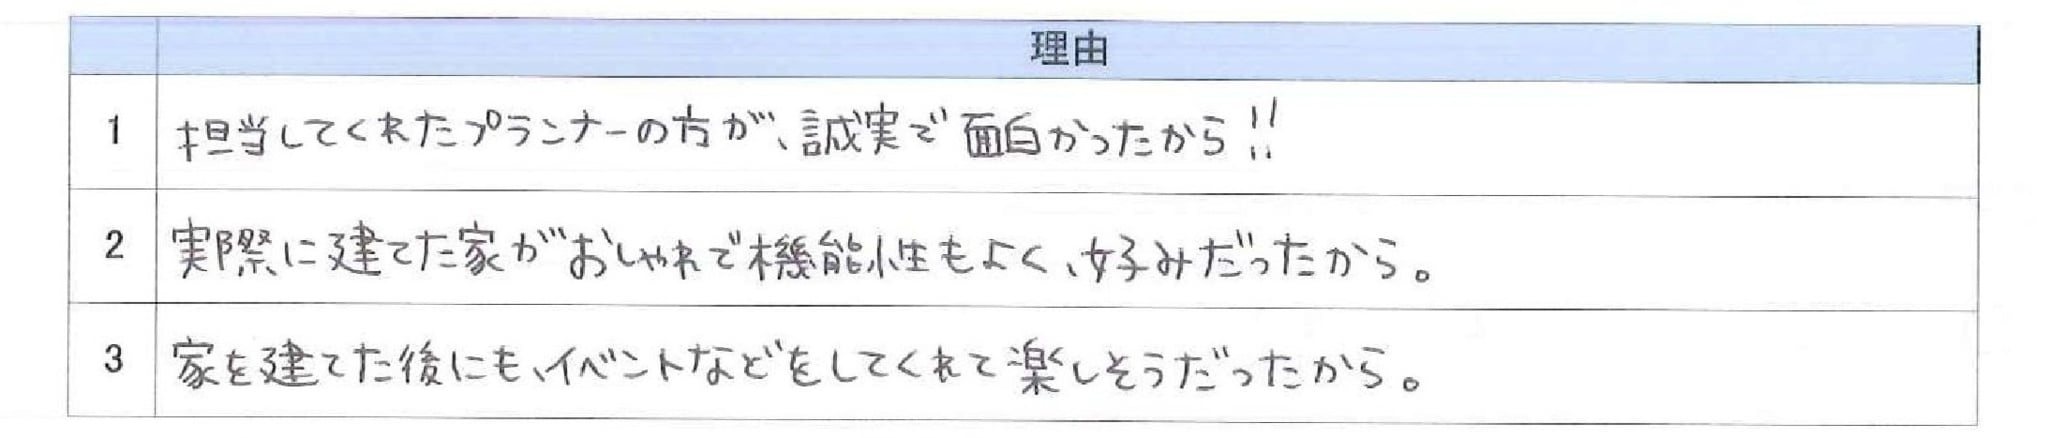 理由
1 担当してくれたプランナーの方が、誠実で面白かったから!!
2 実際に建てた家がおしゃれで機能性もよく、好みだったから。
3 家を建てた後にも、イベントなどをしてくれて楽しそうだったから。